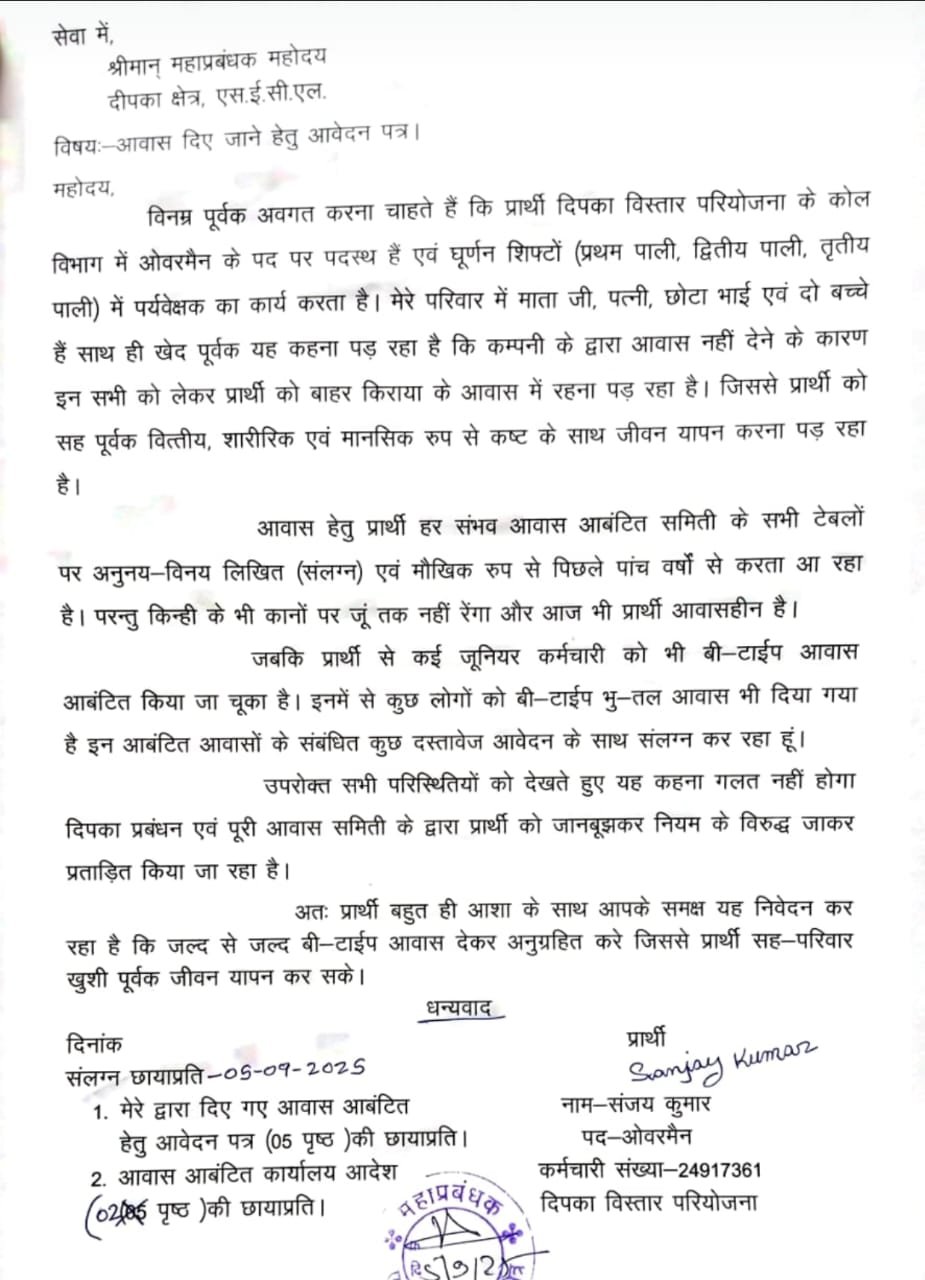 सेवा में,
श्रीमान् महाप्रबंधक महोदय
दीपका क्षेत्र, एस.ई.सी.एल.
विषयः–आवास दिए जाने हेतु आवेदन पत्र।
महोदय,
विनम्र पूर्वक अवगत करना चाहते हैं कि प्रार्थी दिपका विस्तार परियोजना के कोल
विभाग में ओवरमैन के पद पर पदस्थ हैं एवं घूर्णन शिफ्टों (प्रथम पाली, द्वितीय पाली, तृतीय
पाली) में पर्यवेक्षक का कार्य करता है। मेरे परिवार में माता जी, पत्नी, छोटा भाई एवं दो बच्चे
हैं साथ ही खेद पूर्वक यह कहना पड़ रहा है कि कम्पनी के द्वारा आवास नहीं देने के कारण
इन सभी को लेकर प्रार्थी को बाहर किराया के आवास में रहना पड़ रहा है। जिससे प्रार्थी को
सह पूर्वक वित्तीय, शारीरिक एवं मानसिक रुप से कष्ट के साथ जीवन यापन करना पड़ रहा
है।
आवास हेतु प्रार्थी हर संभव आवास आबंटित समिती के सभी टेबलों
पर अनुनय–विनय लिखित (संलग्न) एवं मौखिक रुप से पिछले पांच वर्षो से करता आ रहा
है। परन्तु किन्ही के भी कानों पर जूं तक नहीं रेंगा और आज भी प्रार्थी आवासहीन है।
जबकि प्रार्थी से कई जूनियर कर्मचारी को भी बी–टाईप आवास
आबंटित किया जा चूका है। इनमें से कुछ लोगों को बी–टाईप भु–तल आवास भी दिया गया
है इन आबंटित आवासों के संबंधित कुछ दस्तावेज आवेदन के साथ संलग्न कर रहा हूं।
उपरोक्त सभी परिस्थितियों को देखते हुए यह कहना गलत नहीं होगा
दिपका प्रबंधन एवं पूरी आवास समिति के द्वारा प्रार्थी को जानबूझकर नियम के विरुद्ध जाकर
प्रताड़ित किया जा रहा है।
अतः प्रार्थी बहुत ही आशा के साथ आपके समक्ष यह निवेदन कर
रहा है कि जल्द से जल्द बी–टाईप आवास देकर अनुग्रहित करे जिससे प्रार्थी सह–परिवार
खुशी पूर्वक जीवन यापन कर सके।
धन्यवाद
दिनांक
संलग्न छायाप्रति–05-09-2025
1. मेरे द्वारा दिए गए आवास आबंटित
हेतु आवेदन पत्र (05 पृष्ठ )की छायाप्रति।
2. आवास आबंटित कार्यालय आदेश
(02 पृष्ठ )की छायाप्रति।
प्रार्थी
Sanjay Kumar
नाम–संजय कुमार
पद–ओवरमैन
कर्मचारी संख्या–24917361
दिपका विस्तार परियोजना
महाप्रबंधक